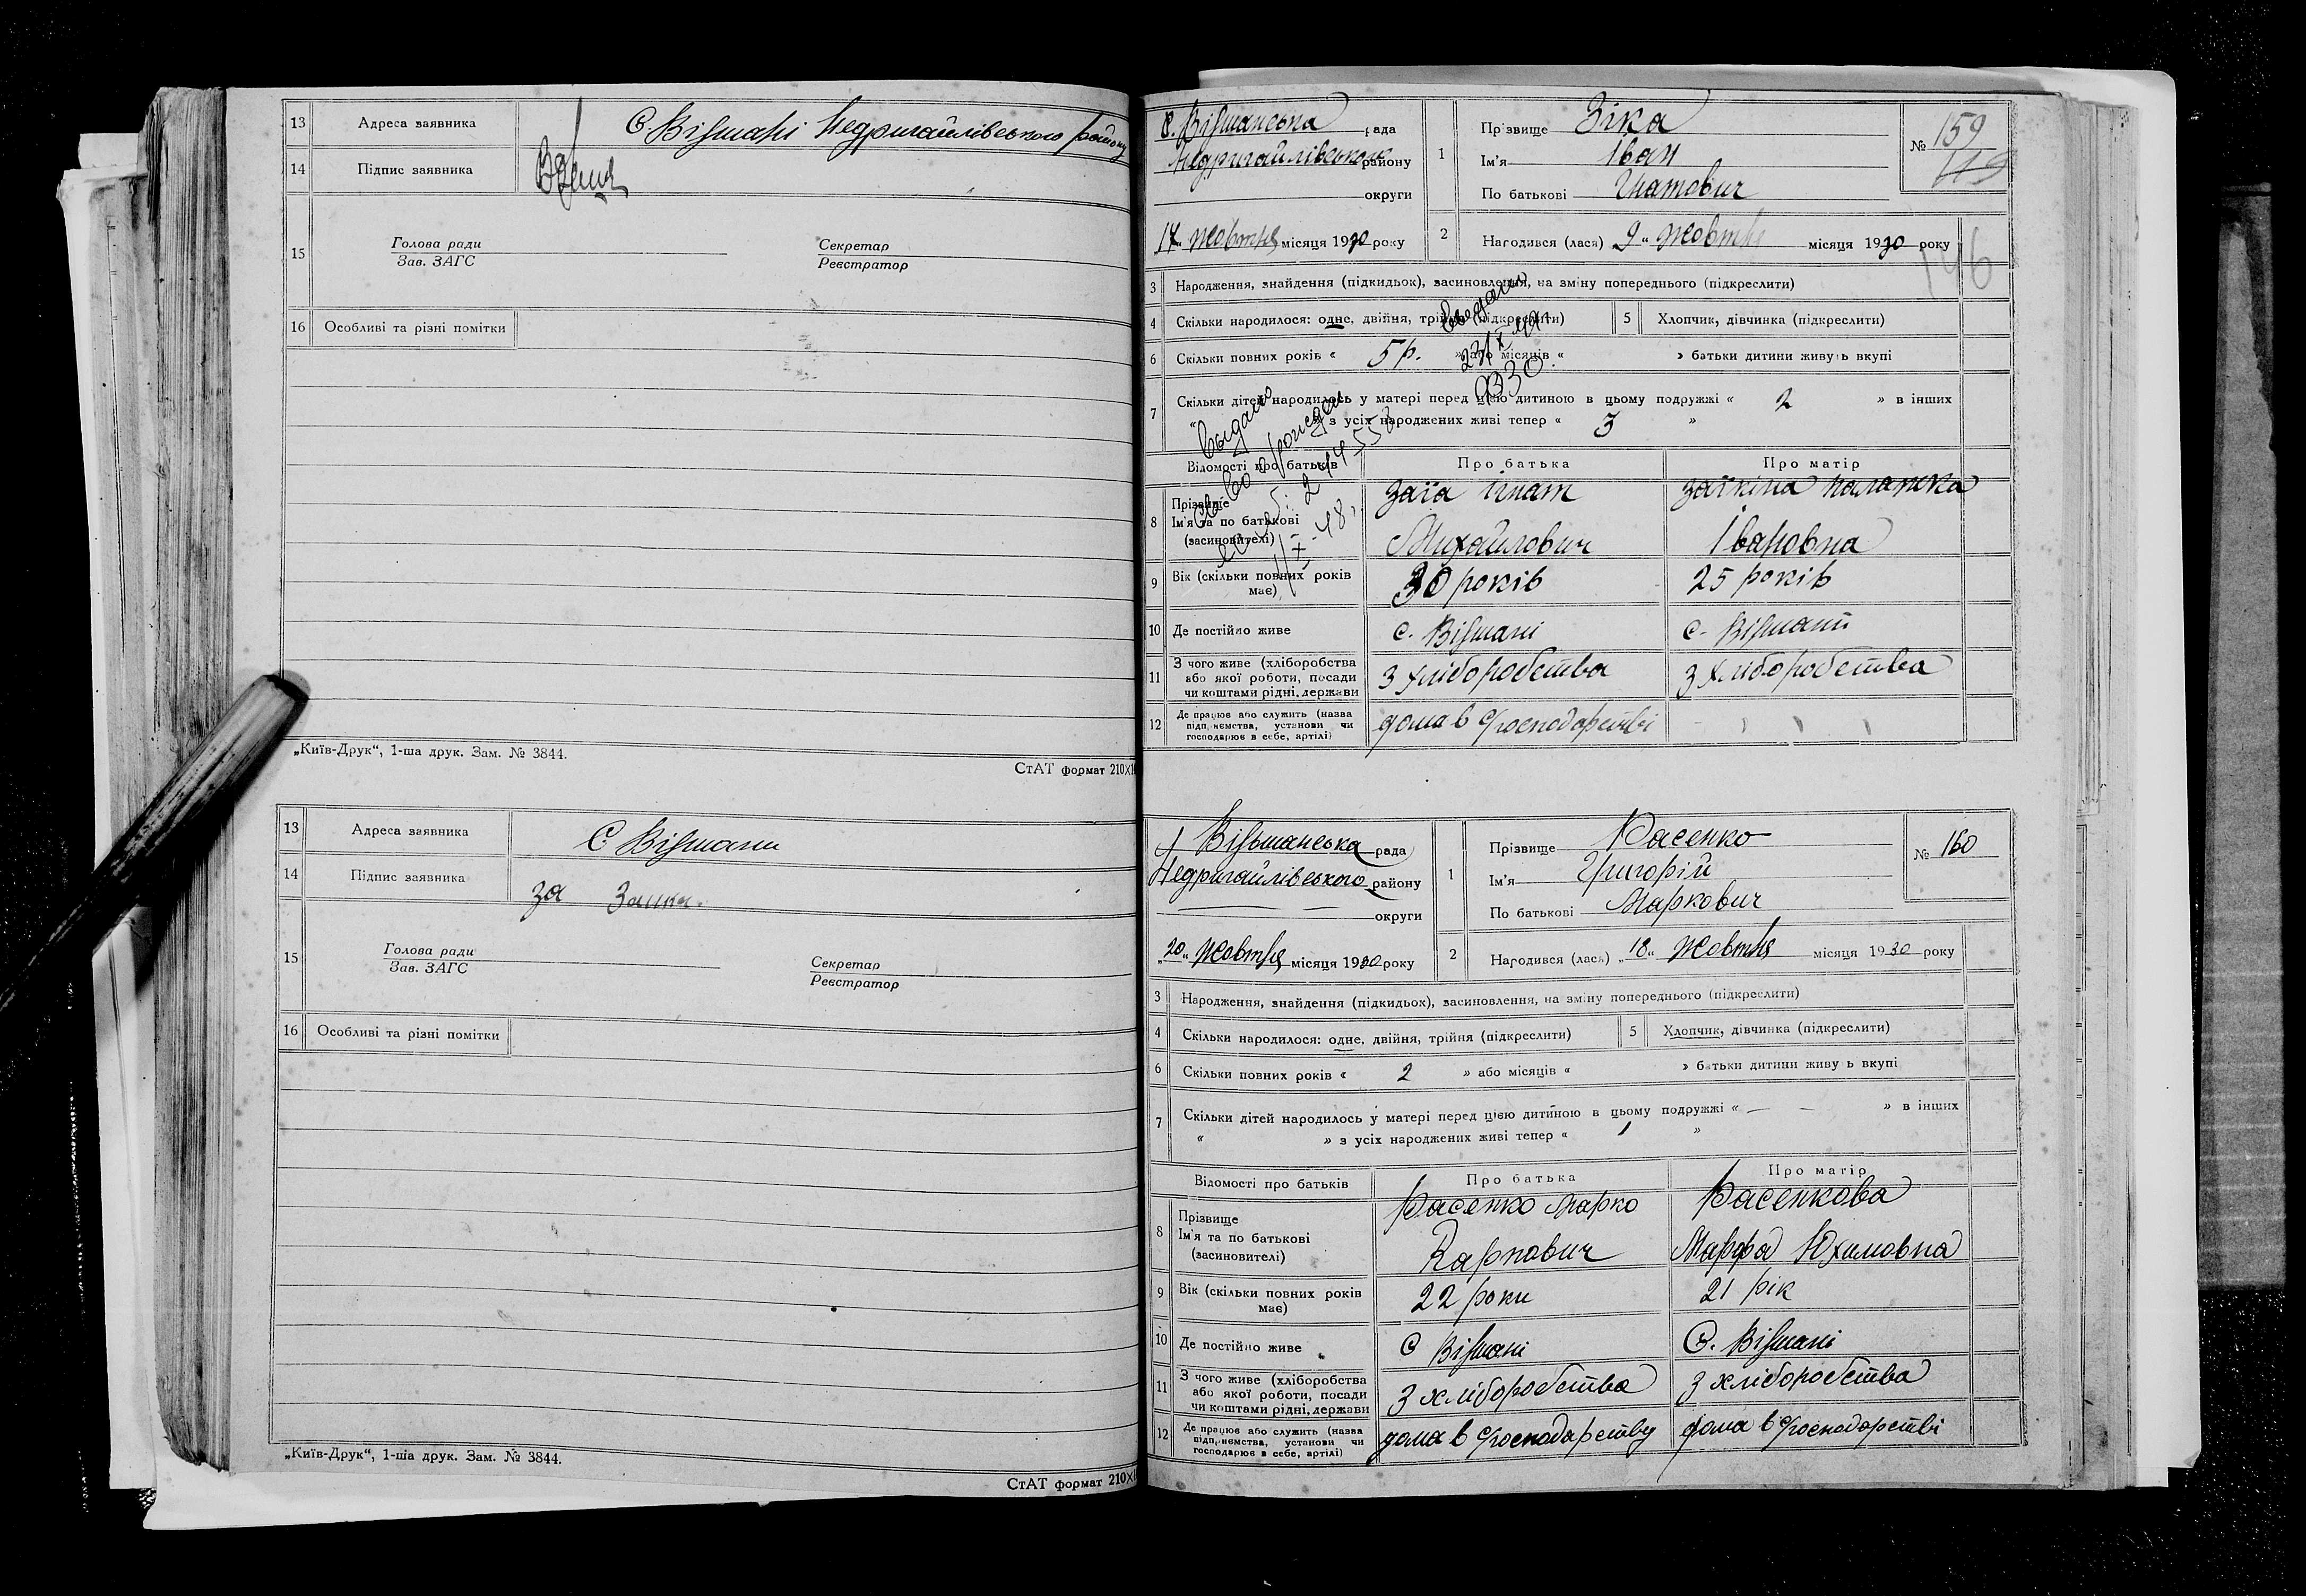 13 Адреса заявника С. Вільшані Недригайлівського району
14 Підпис заявника
15 Голова ради
Зав. ЗАГС
Секретар
Реєстратор
16 Особливі та різні помітки
„Київ-Друк“, 1-ша друк. Зам. № 3844.
СтАТ формат 210×
13 Адреса заявника С Вільшани
14 Підпис заявника за
15 Голова ради
Зав. ЗАГС
Секретар
Реєстратор
16 Особливі та різні помітки
„Київ-Друк“, 1-ша друк. Зам. № 3844.
СтАТ формат 210×
Вільшанська рада
Недригайлівського району
округи
17 „ Жовтня місяця 1930 року
1 Прізвище Зіка
Ім'я Іван
По батькові Гнатович
№ 159
2 Народився (лася) 9 „ Жовтня місяця 1930 року
146
3 Народження, знайдення (підкидьок), засиновлення, на зміну попереднього (підкреслити)
4 Скільки народилося: одне, двійня, трійня (підкреслити) 5 Хлопчик, дівчинка (підкреслити)
6 Скільки повних років « 5 р. » або місяців « » батьки дитини живуть вкупі
7 Скільки дітей народилось у матері перед цією дитиною в цьому подружжі « 2 » в інших
« » з усіх народжених живі тепер « 3 »
Відомості про батьків Про батька Про матір
8 Прізвище
Ім'я та по батькові
(засиновителі)
Заїа Гнат
Михайлович
Заїкіна Палажка
Івановна
9 Вік (скільки повних років має) 30 років 25 років
10 Де постійно живе с. Вільшані с. Вільшані
11 З чого живе (хліборобства
або якої роботи, посади
чи коштами рідні, держави
З хліборобства З хліборобства
12 Де працює або служить (назва
підприємства, установи чи
господарює в себе, артілі)
дома в господарстві
Вільшанська рада
Недригайлівського району
округи
„20„ Жовтня місяця 1930 року
1 Прізвище Васенко
Ім'я Григорій
По батькові Маркович
№ 160
2 Народився (лася) „18„ Жовтня місяця 1930 року
3 Народження, знайдення (підкидьох), засиновлення, на зміну попереднього (підкреслити)
4 Скільки народилося: одне, двійня, трійня (підкреслити) 5 Хлопчик, дівчинка (підкреслити)
6 Скільки повних років « 2 » або місяців « » батьки дитини живуть вкупі
7 Скільки дітей народилось у матері перед цією дитиною в цьому подружжі « — – » в інших
« » з усіх народжених живі тепер « 1 »
Відомості про батьків Про батька Про матір
8 Прізвище
Ім'я та по батькові
(засиновителі)
Васенко Марко
Карпович
Васенкова
Марфа Юхимовна
9 Вік (скільки повних років має) 22 роки 21 рік
10 Де постійно живе С Вільшані С. Вільшані
11 З чого живе (хліборобства
або якої роботи, посади
чи коштами рідні, держави
З хліборобства З хліборобства
12 Де працює або служить (назва
підприємства, установи чи
господарює в себе, артілі)
дома в господарству дома в господарстві